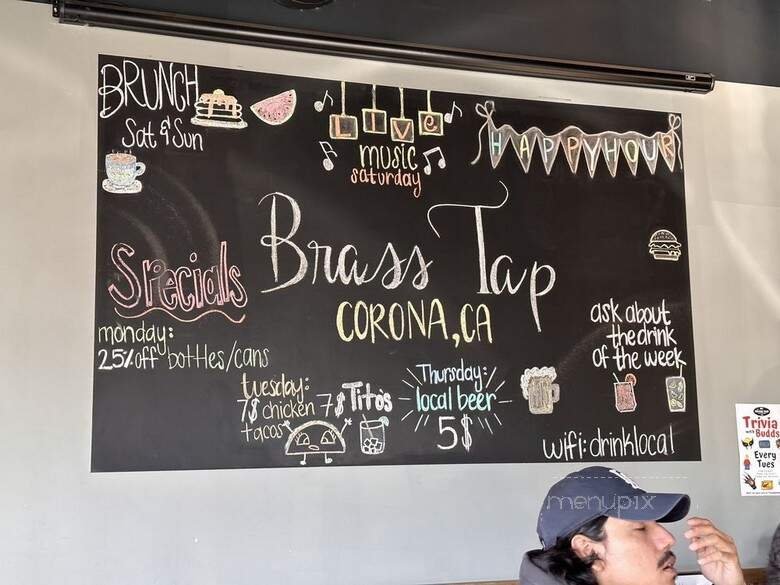 BRUNCH
Sat & Sun
Live
music
saturday
HAPPY HOUR
Brass Tap
CORONA, CA
Specials
monday:
25% off bottles/cans
tuesday:
7$ chicken
tacos
7$ Tito's
Thursday:
local beer
5$
ask about
the drink
of the week
wifi: drinklocal
Trivia
with Budds
Every
Tues
menupix